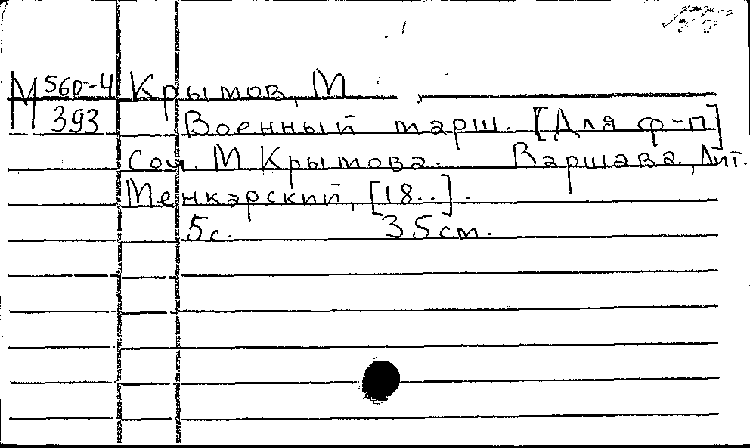 М 560-4 Крымов, М
393 Военный марш. [Для ф-п]
Соч. М Крымова. Варшава, Лит.
Менкарский, [18..].
5с. 35см.